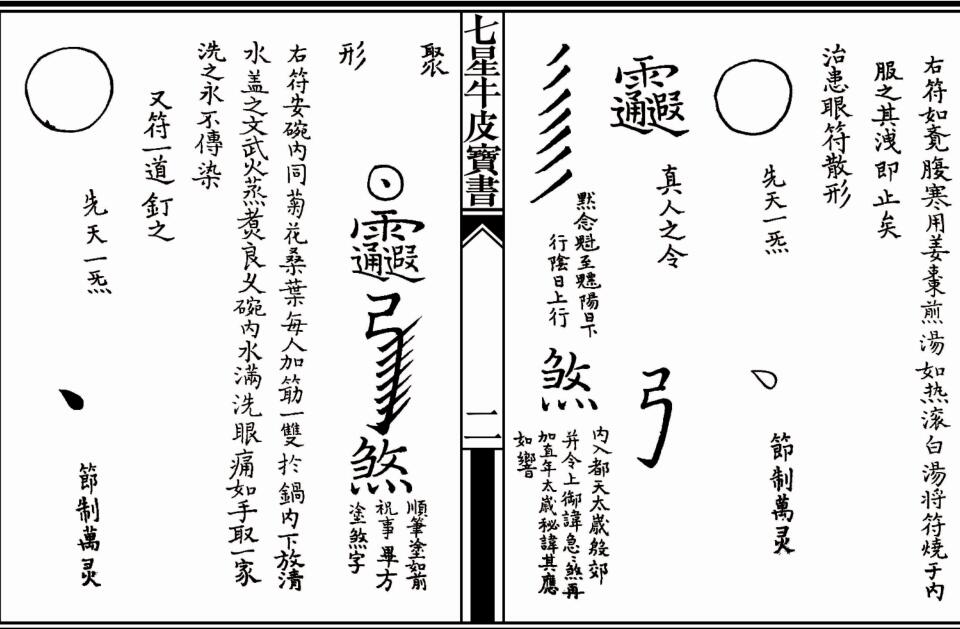 右符如竟腹寒用姜棗煎湯如热滾白湯将符燒于内
服之其洩即止矣
先天一炁
節制萬灵
治患眼符散形
真人之令
弓
默念魁至魓陽日下
行陰日上行
煞
内入都天太歲殷郊
并令上御諱急煞再
加直年太歲秘諱其應
如響
七星牛皮寶書
二
聚
形
弓
煞
順筆塗如前
祝事畢方
塗煞字
右符安碗内同菊花桑葉每人加筯一雙扵鍋内下放清
水盖之文武火蒸煑良乆碗内水滿洗眼痛如手取一家
洗之永不傳染
又符一道釘之
先天一炁
節制萬灵